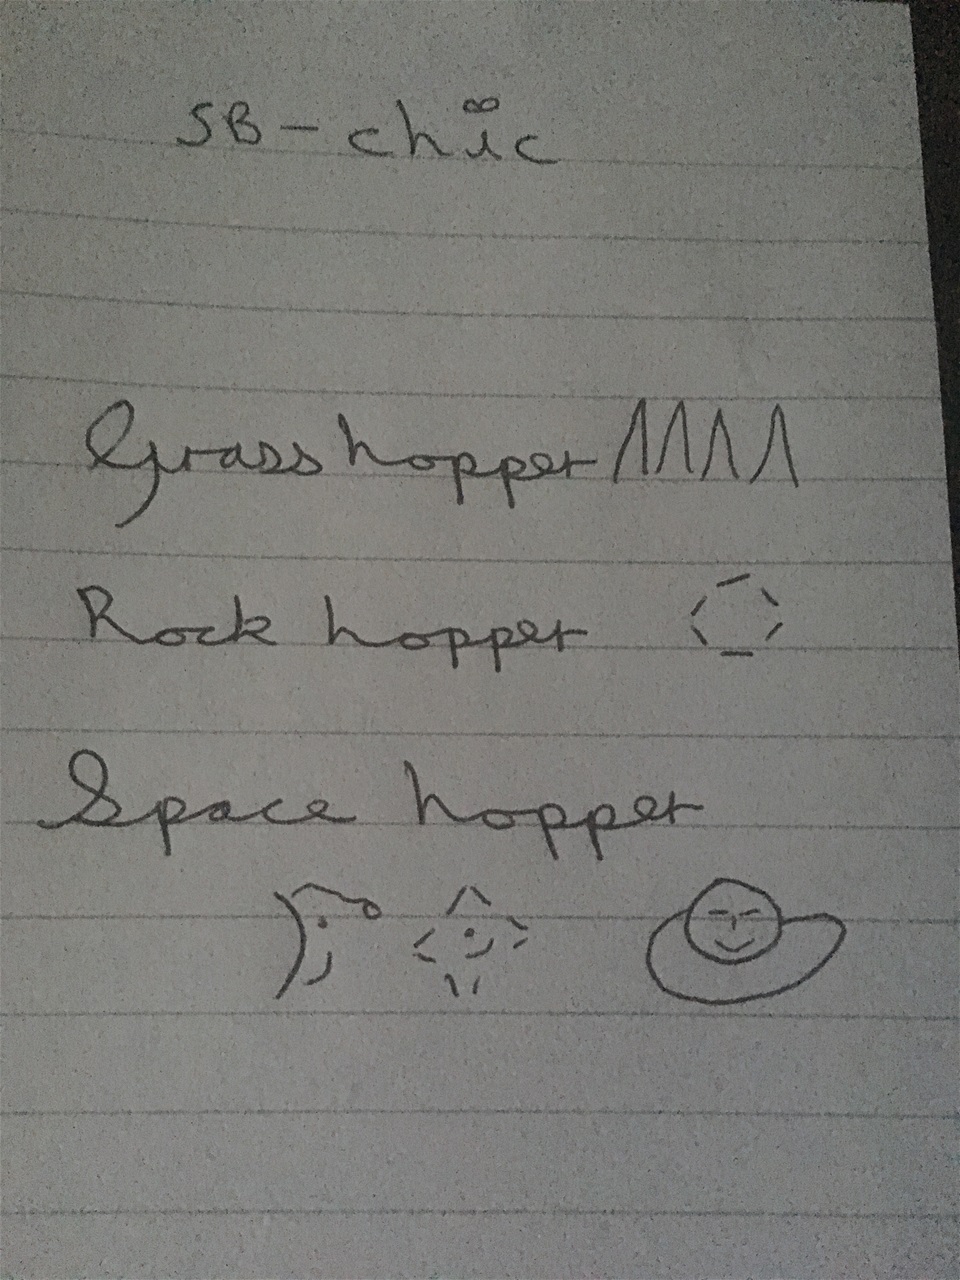 SB - chic
Grass hopper
Rock hopper
Space hopper